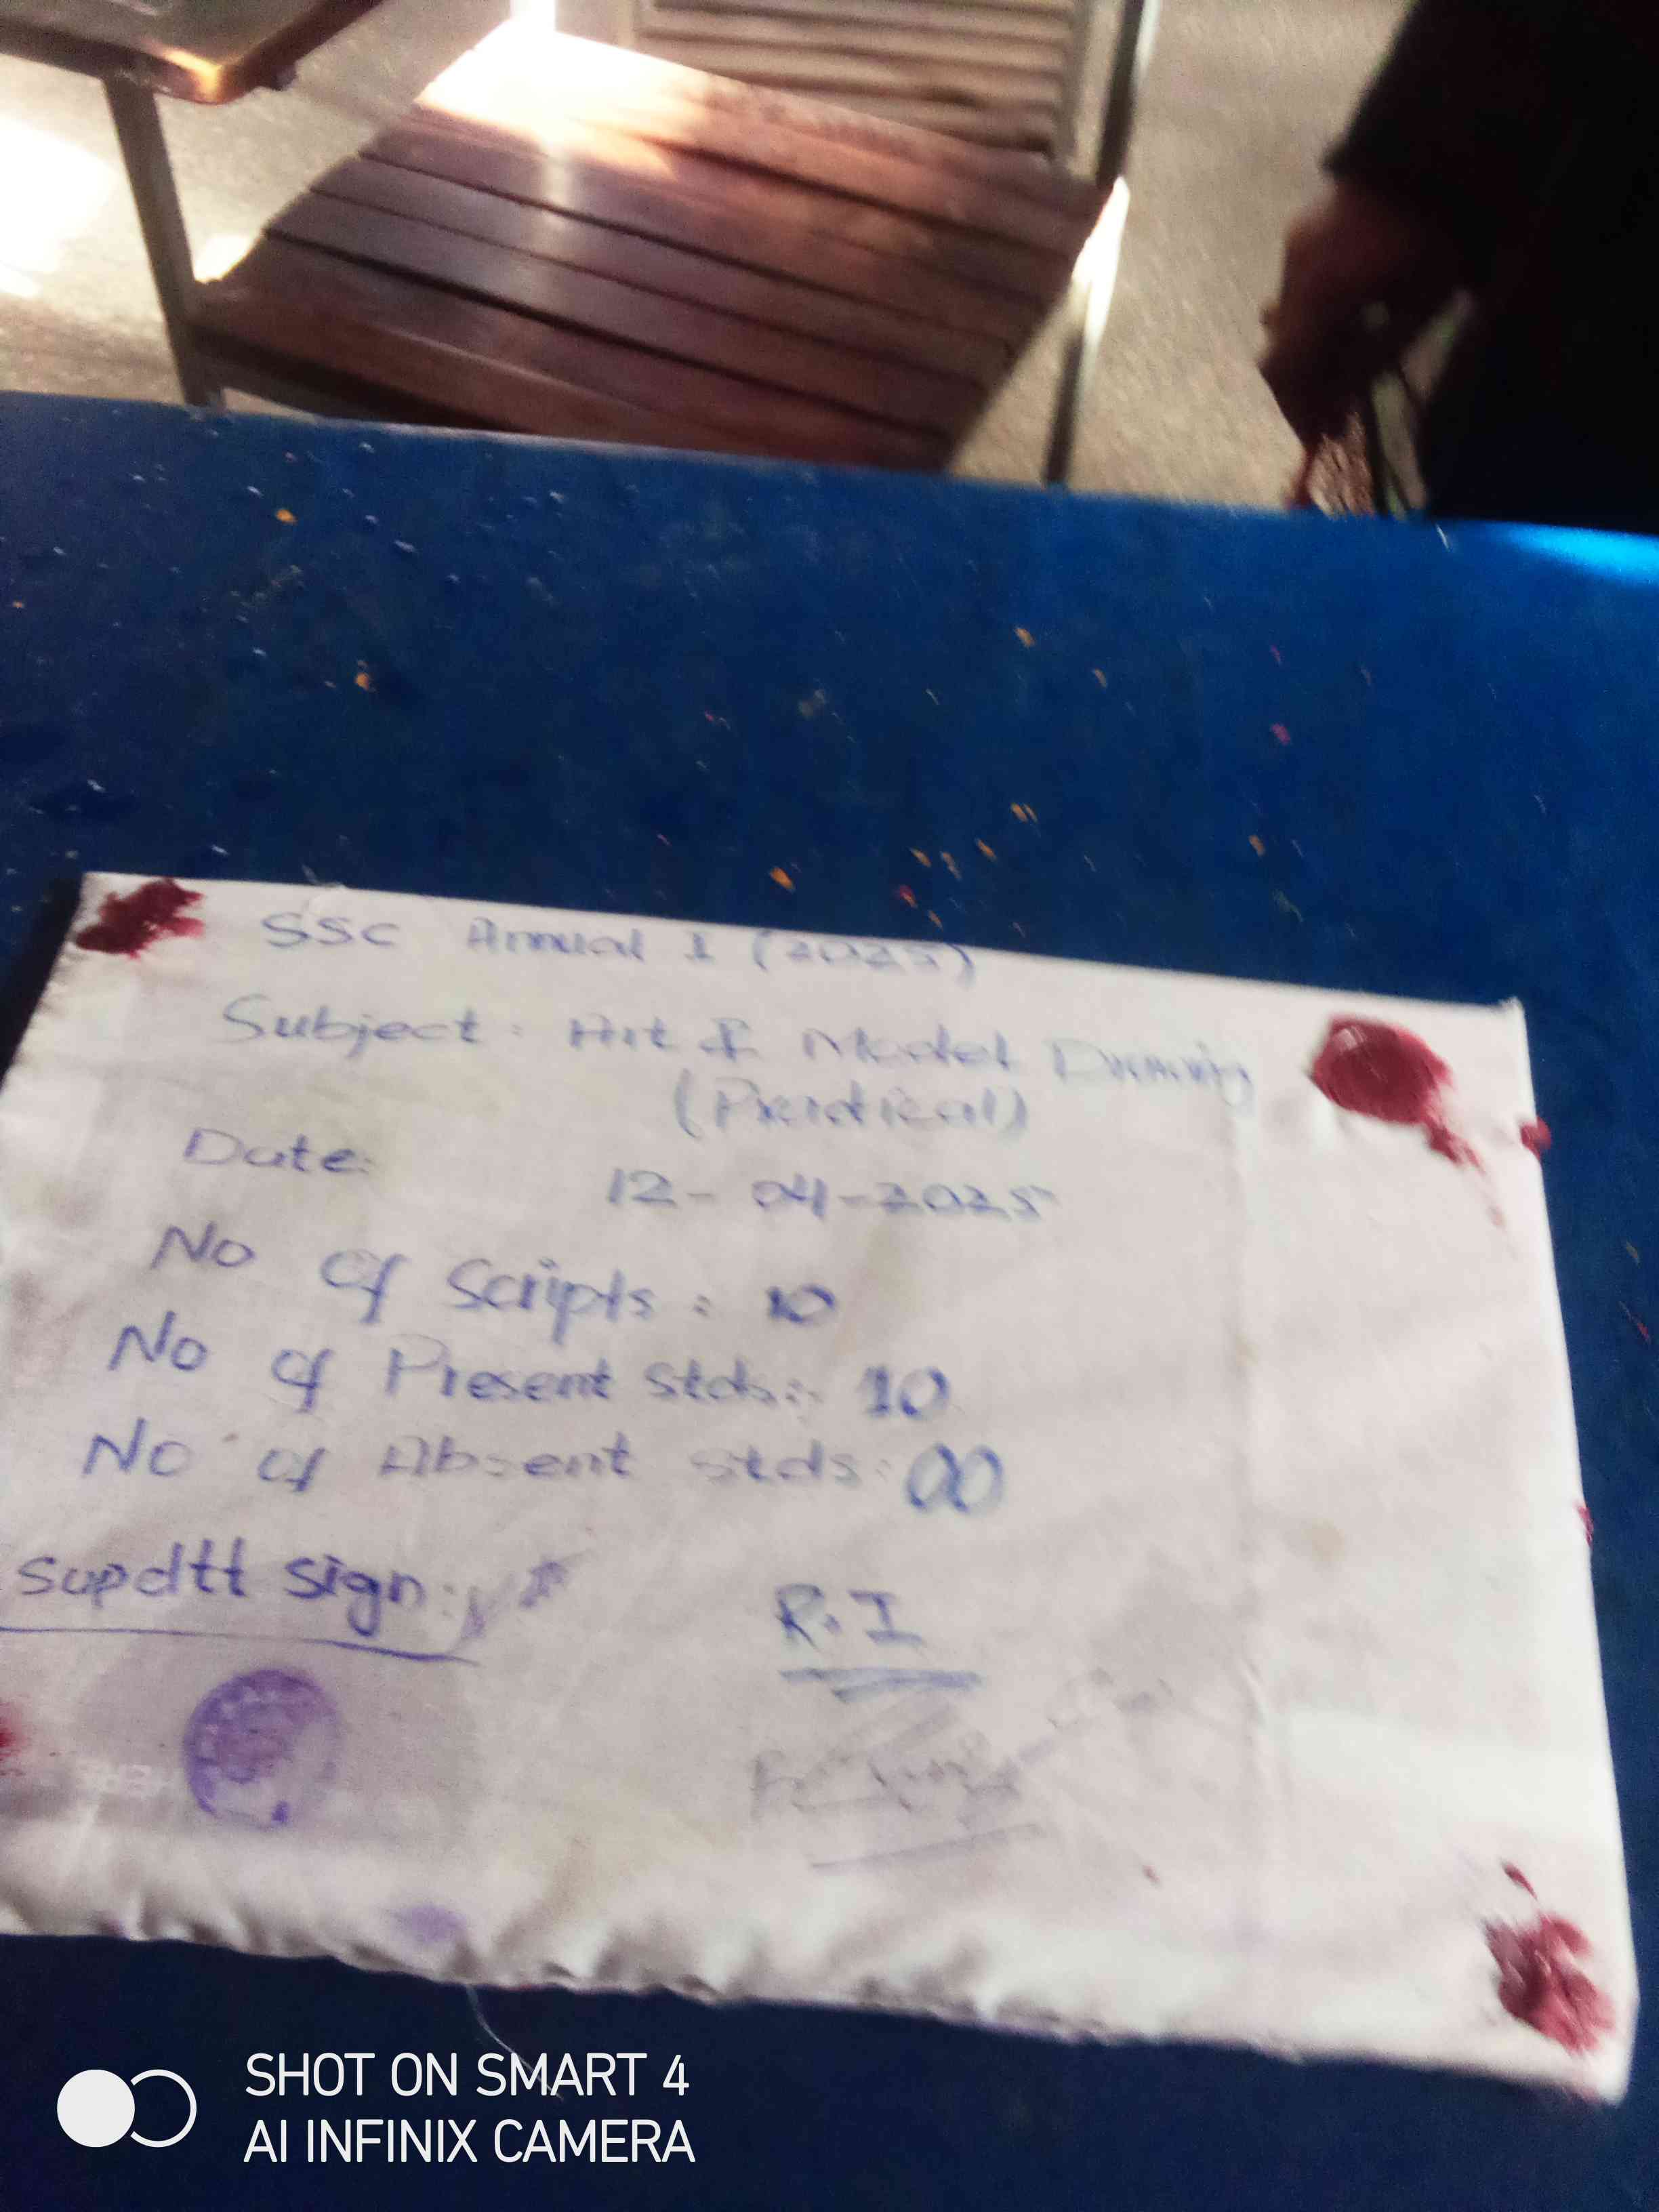 SSC Annual I (2025)
Subject: Art & Model Drawing
(Practical)
Date: 12-04-2025
No of Scripts: 10
No of Present stds:- 10
No of Absent stds: 00
Supdtt sign:
R.I
SHOT ON SMART 4
AI INFINIX CAMERA